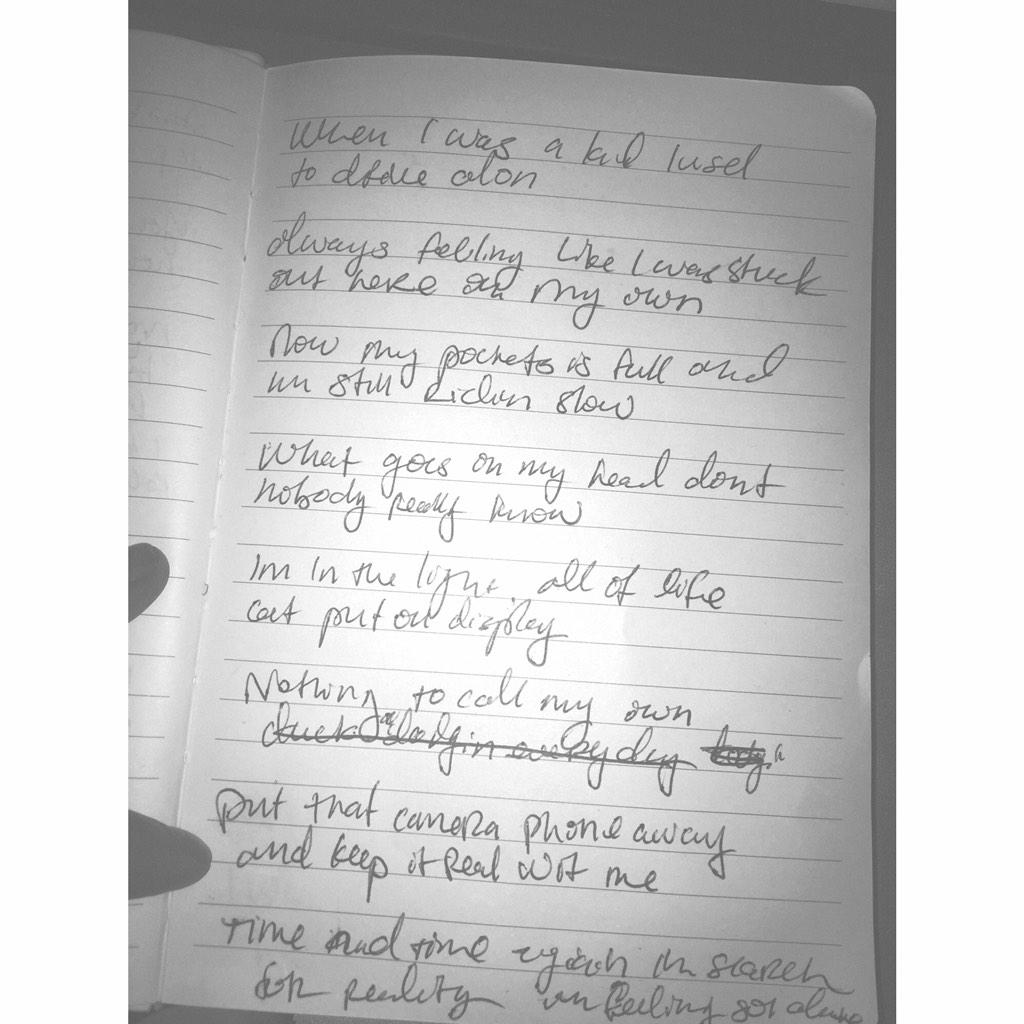 When I was a kid I used
to drive alon
always feeling like I was stuck
out here on my own
Now my pockets is full and
im still ridin slow
What goes on my head dont
nobody really know
Im in the light. all of life
get put on display
Nothing to call my own
duck dodgin everyday
put that camera phone away
and keep it real wit me
time and time again im search
for reality im feeling so